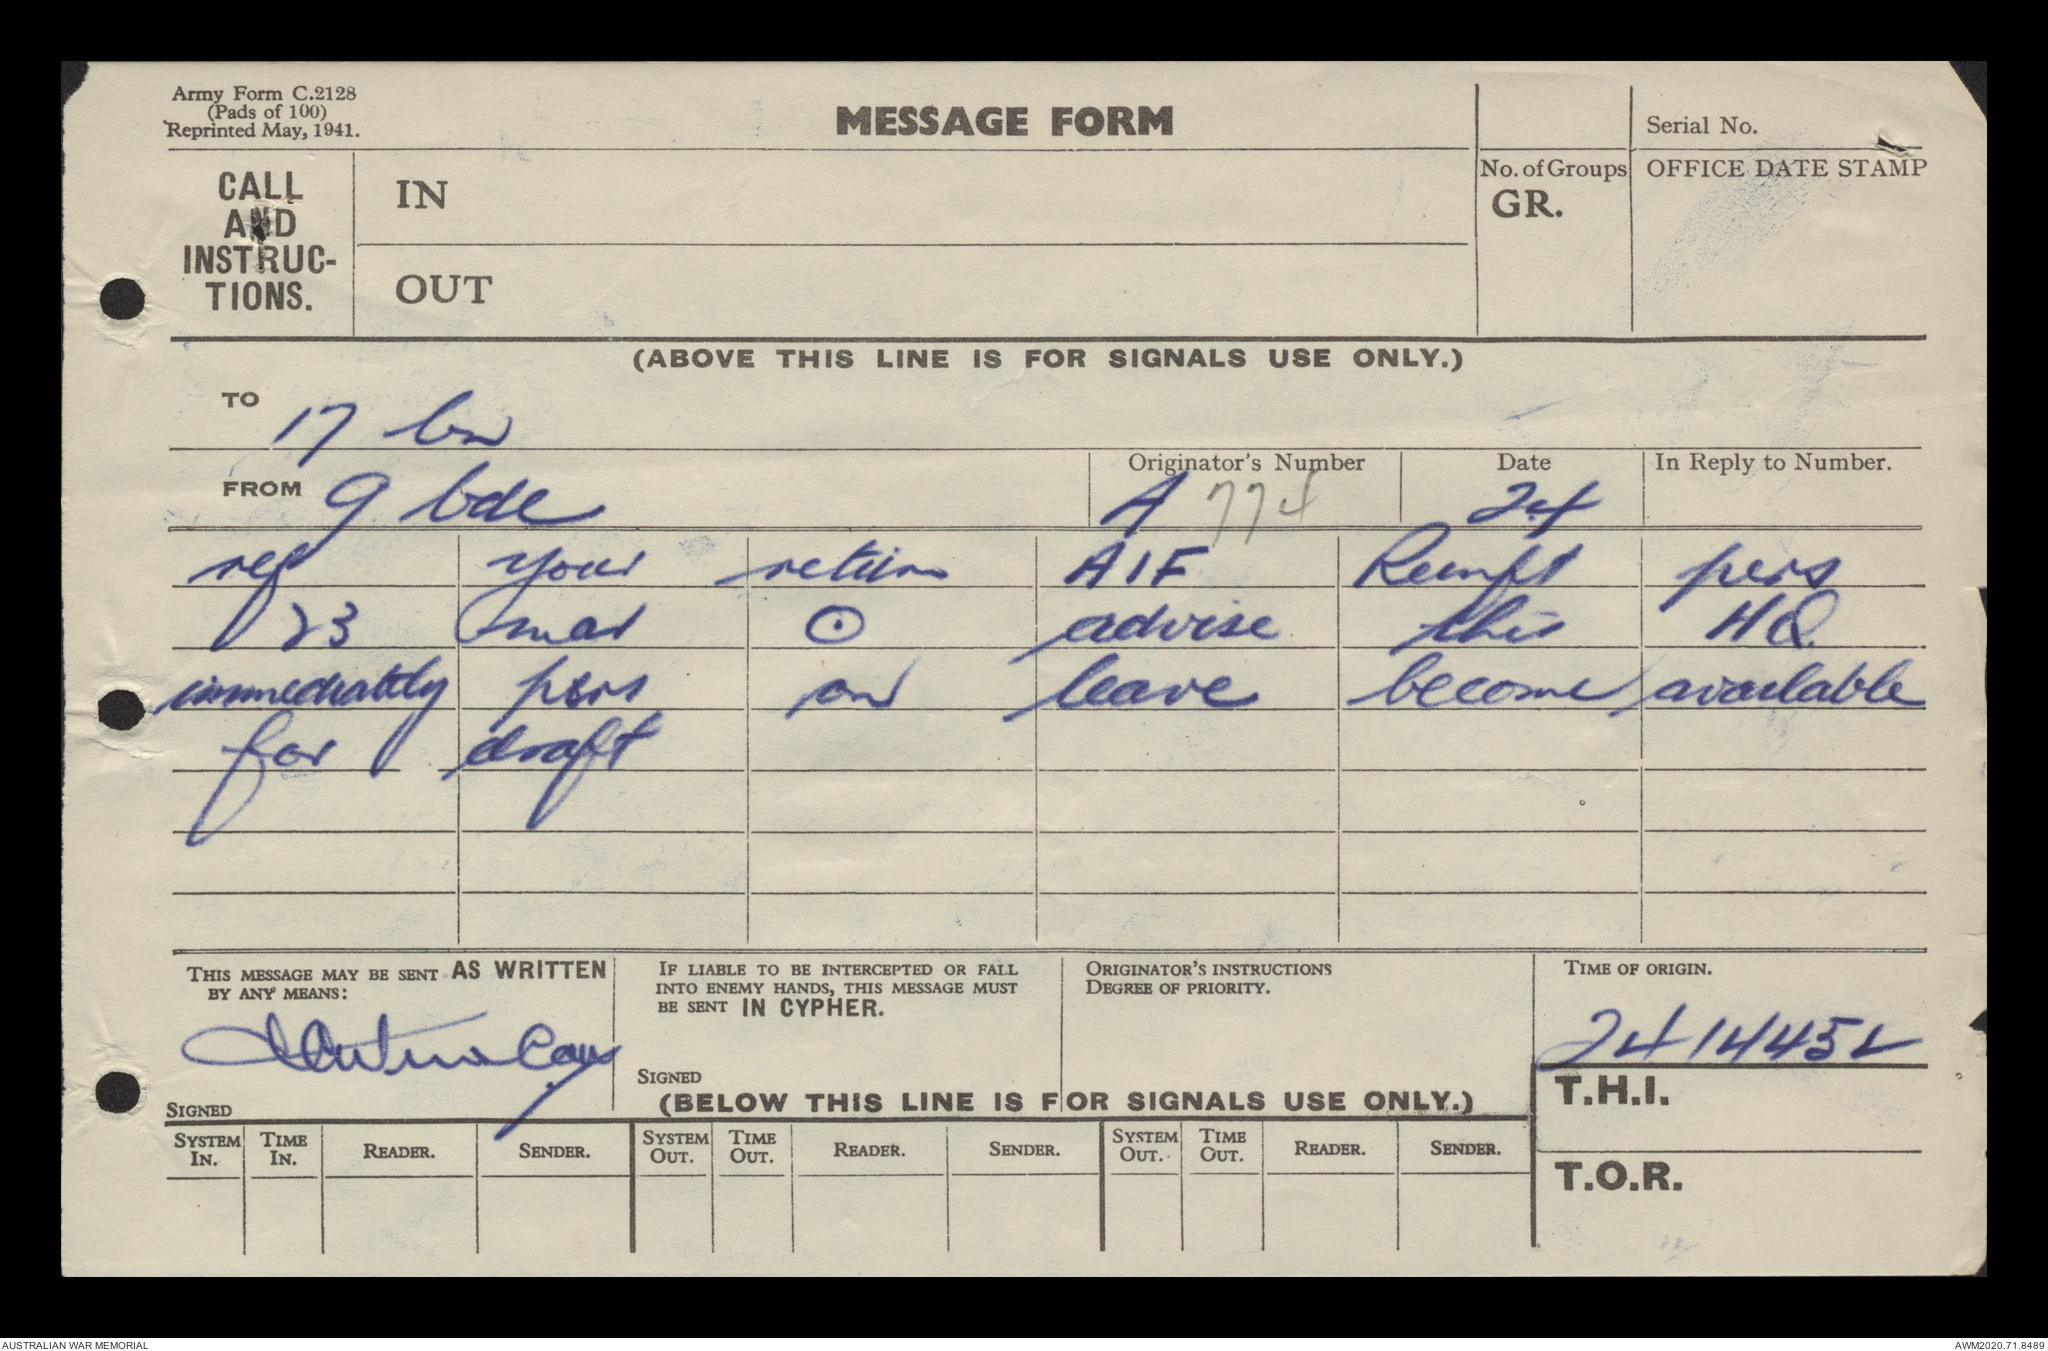 Army Form C.2128
(Pads of 100)
Reprinted May, 1941.
MESSAGE FORM
Serial No.
CALL AND INSTRUC- TIONS.
IN
OUT
No. of Groups
GR.
OFFICE DATE STAMP
(ABOVE THIS LINE IS FOR SIGNALS USE ONLY.)
TO 17 bn
FROM 9 bde
Originator's Number A 774
Date 24
In Reply to Number.
ref your return AIF Reinft pers
23 mar ⊙ advise this HQ
immediately pers on leave become available
for draft
THIS MESSAGE MAY BE SENT AS WRITTEN
BY ANY MEANS:
SIGNED
IF LIABLE TO BE INTERCEPTED OR FALL
INTO ENEMY HANDS, THIS MESSAGE MUST
BE SENT IN CYPHER.
SIGNED
ORIGINATOR'S INSTRUCTIONS
DEGREE OF PRIORITY.
TIME OF ORIGIN.
241445L
(BELOW THIS LINE IS FOR SIGNALS USE ONLY.)
T.H.I.
T.O.R.
SYSTEM IN. TIME IN. READER. SENDER. SYSTEM OUT. TIME OUT. READER. SENDER. SYSTEM OUT. TIME OUT. READER. SENDER.
AUSTRALIAN WAR MEMORIAL
AWM2020.71.8489